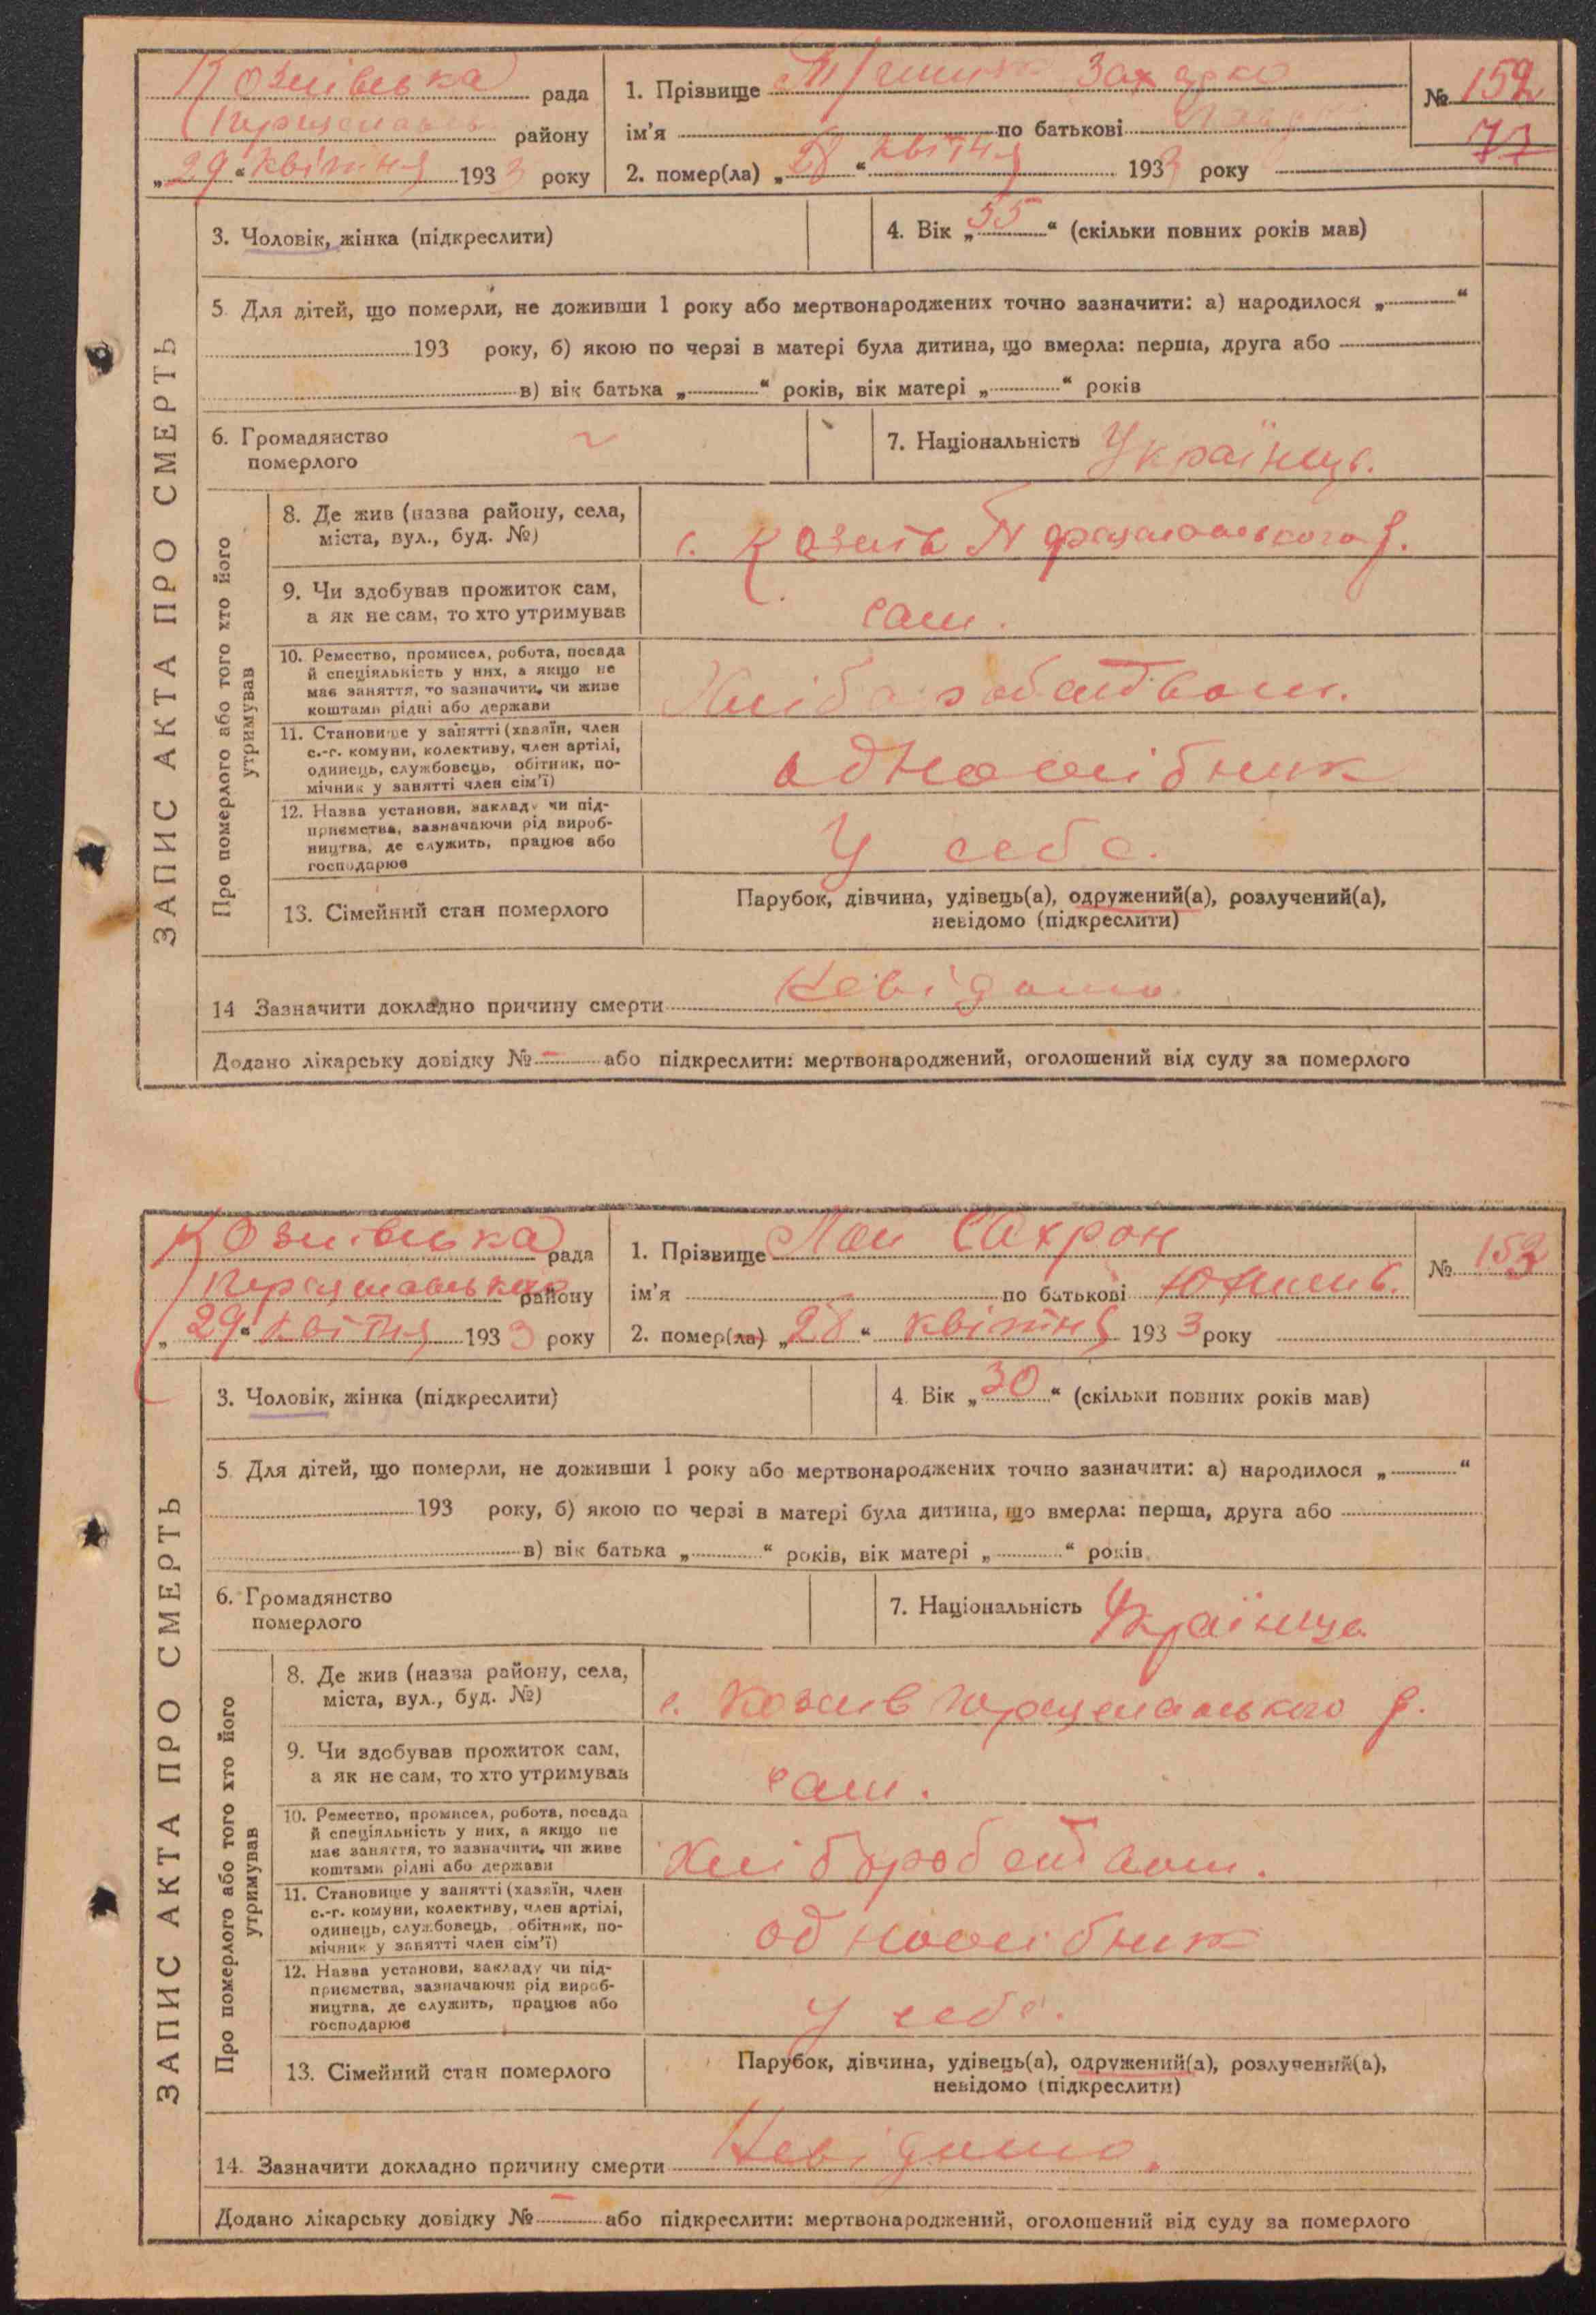 Козлівська рада
району
„29“ квітня 1933 року
1. Прізвище Захарко
ім'я по батькові
2. помер(ла) „28“ квітня 1933 року
№ 152
77
ЗАПИС АКТА ПРО СМЕРТЬ
3. Чоловік, жінка (підкреслити)
4. Вік „55“ (скільки повних років мав)
5. Для дітей, що померли, не доживши 1 року або мертвонароджених точно зазначити: а) народилося „ “
193 року, б) якою по черзі в матері була дитина, що вмерла: перша, друга або
в) вік батька „ “ років, вік матері „ “ років
6. Громадянство
померлого
7. Національність Українець.
Про померлого або того хто його
утримував
8. Де жив (назва району, села,
міста, вул., буд. №)
с. Козлів р.
9. Чи здобував прожиток сам,
а як не сам, то хто утримував
сам.
10. Ремество, промисел, робота, посада
й спеціяльність у них, а якщо не
має заняття, то зазначити, чи живе
коштами рідні або держави
11. Становище у занятті (хазяїн, член
с.-г. комуни, колективу, член артілі,
одинець, службовець, обітник, по-
мічник у занятті член сім'ї)
одноосібник
12. Назва установи, закладу чи під-
приємства, зазначаючи рід вироб-
ництва, де служить, працює або
господарює
У себе.
13. Сімейний стан померлого
Парубок, дівчина, удівець(а), одружений(а), розлучений(а),
невідомо (підкреслити)
14 Зазначити докладно причину смерти Невідомо
Додано лікарську довідку № – або підкреслити: мертвонароджений, оголошений від суду за померлого
Козлівська рада
району
„29“ квітня 1933 року
1. Прізвище
ім'я по батькові
2. помер(ла) „28“ квітня 1933 року
№ 153
ЗАПИС АКТА ПРО СМЕРТЬ
3. Чоловік, жінка (підкреслити)
4. Вік „30“ (скільки повних років мав)
5. Для дітей, що померли, не доживши 1 року або мертвонароджених точно зазначити: а) народилося „ “
193 року, б) якою по черзі в матері була дитина, що вмерла: перша, друга або
в) вік батька „ “ років, вік матері „ “ років
6. Громадянство
померлого
7. Національність
Про померлого або того хто його
утримував
8. Де жив (назва району, села,
міста, вул., буд. №)
с. Козлів р.
9. Чи здобував прожиток сам,
а як не сам, то хто утримував
сам.
10. Ремество, промисел, робота, посада
й спеціяльність у них, а якщо не
має заняття, то зазначити, чи живе
коштами рідні або держави
11. Становище у занятті (хазяїн, член
с.-г. комуни, колективу, член артілі,
одинець, службовець, обітник, по-
мічник у занятті член сім'ї)
одноосібник
12. Назва установи, закладу чи під-
приємства, зазначаючи рід вироб-
ництва, де служить, працює або
господарює
у себе.
13. Сімейний стан померлого
Парубок, дівчина, удівець(а), одружений(а), розлучений(а),
невідомо (підкреслити)
14. Зазначити докладно причину смерти Невідомо.
Додано лікарську довідку № – або підкреслити: мертвонароджений, оголошений від суду за померлого